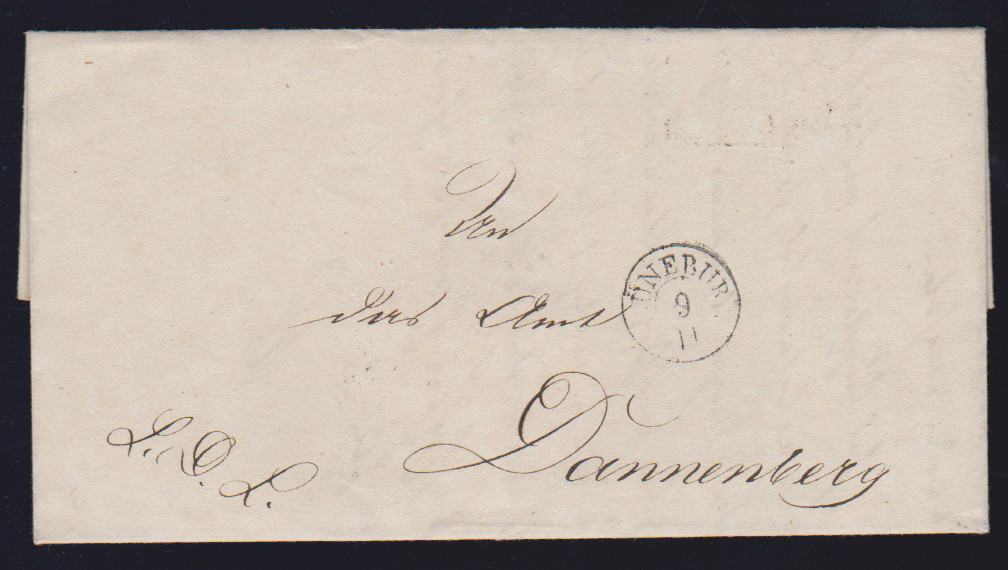 An
das Amt
ÜNEBUR
9
11
Dannenberg